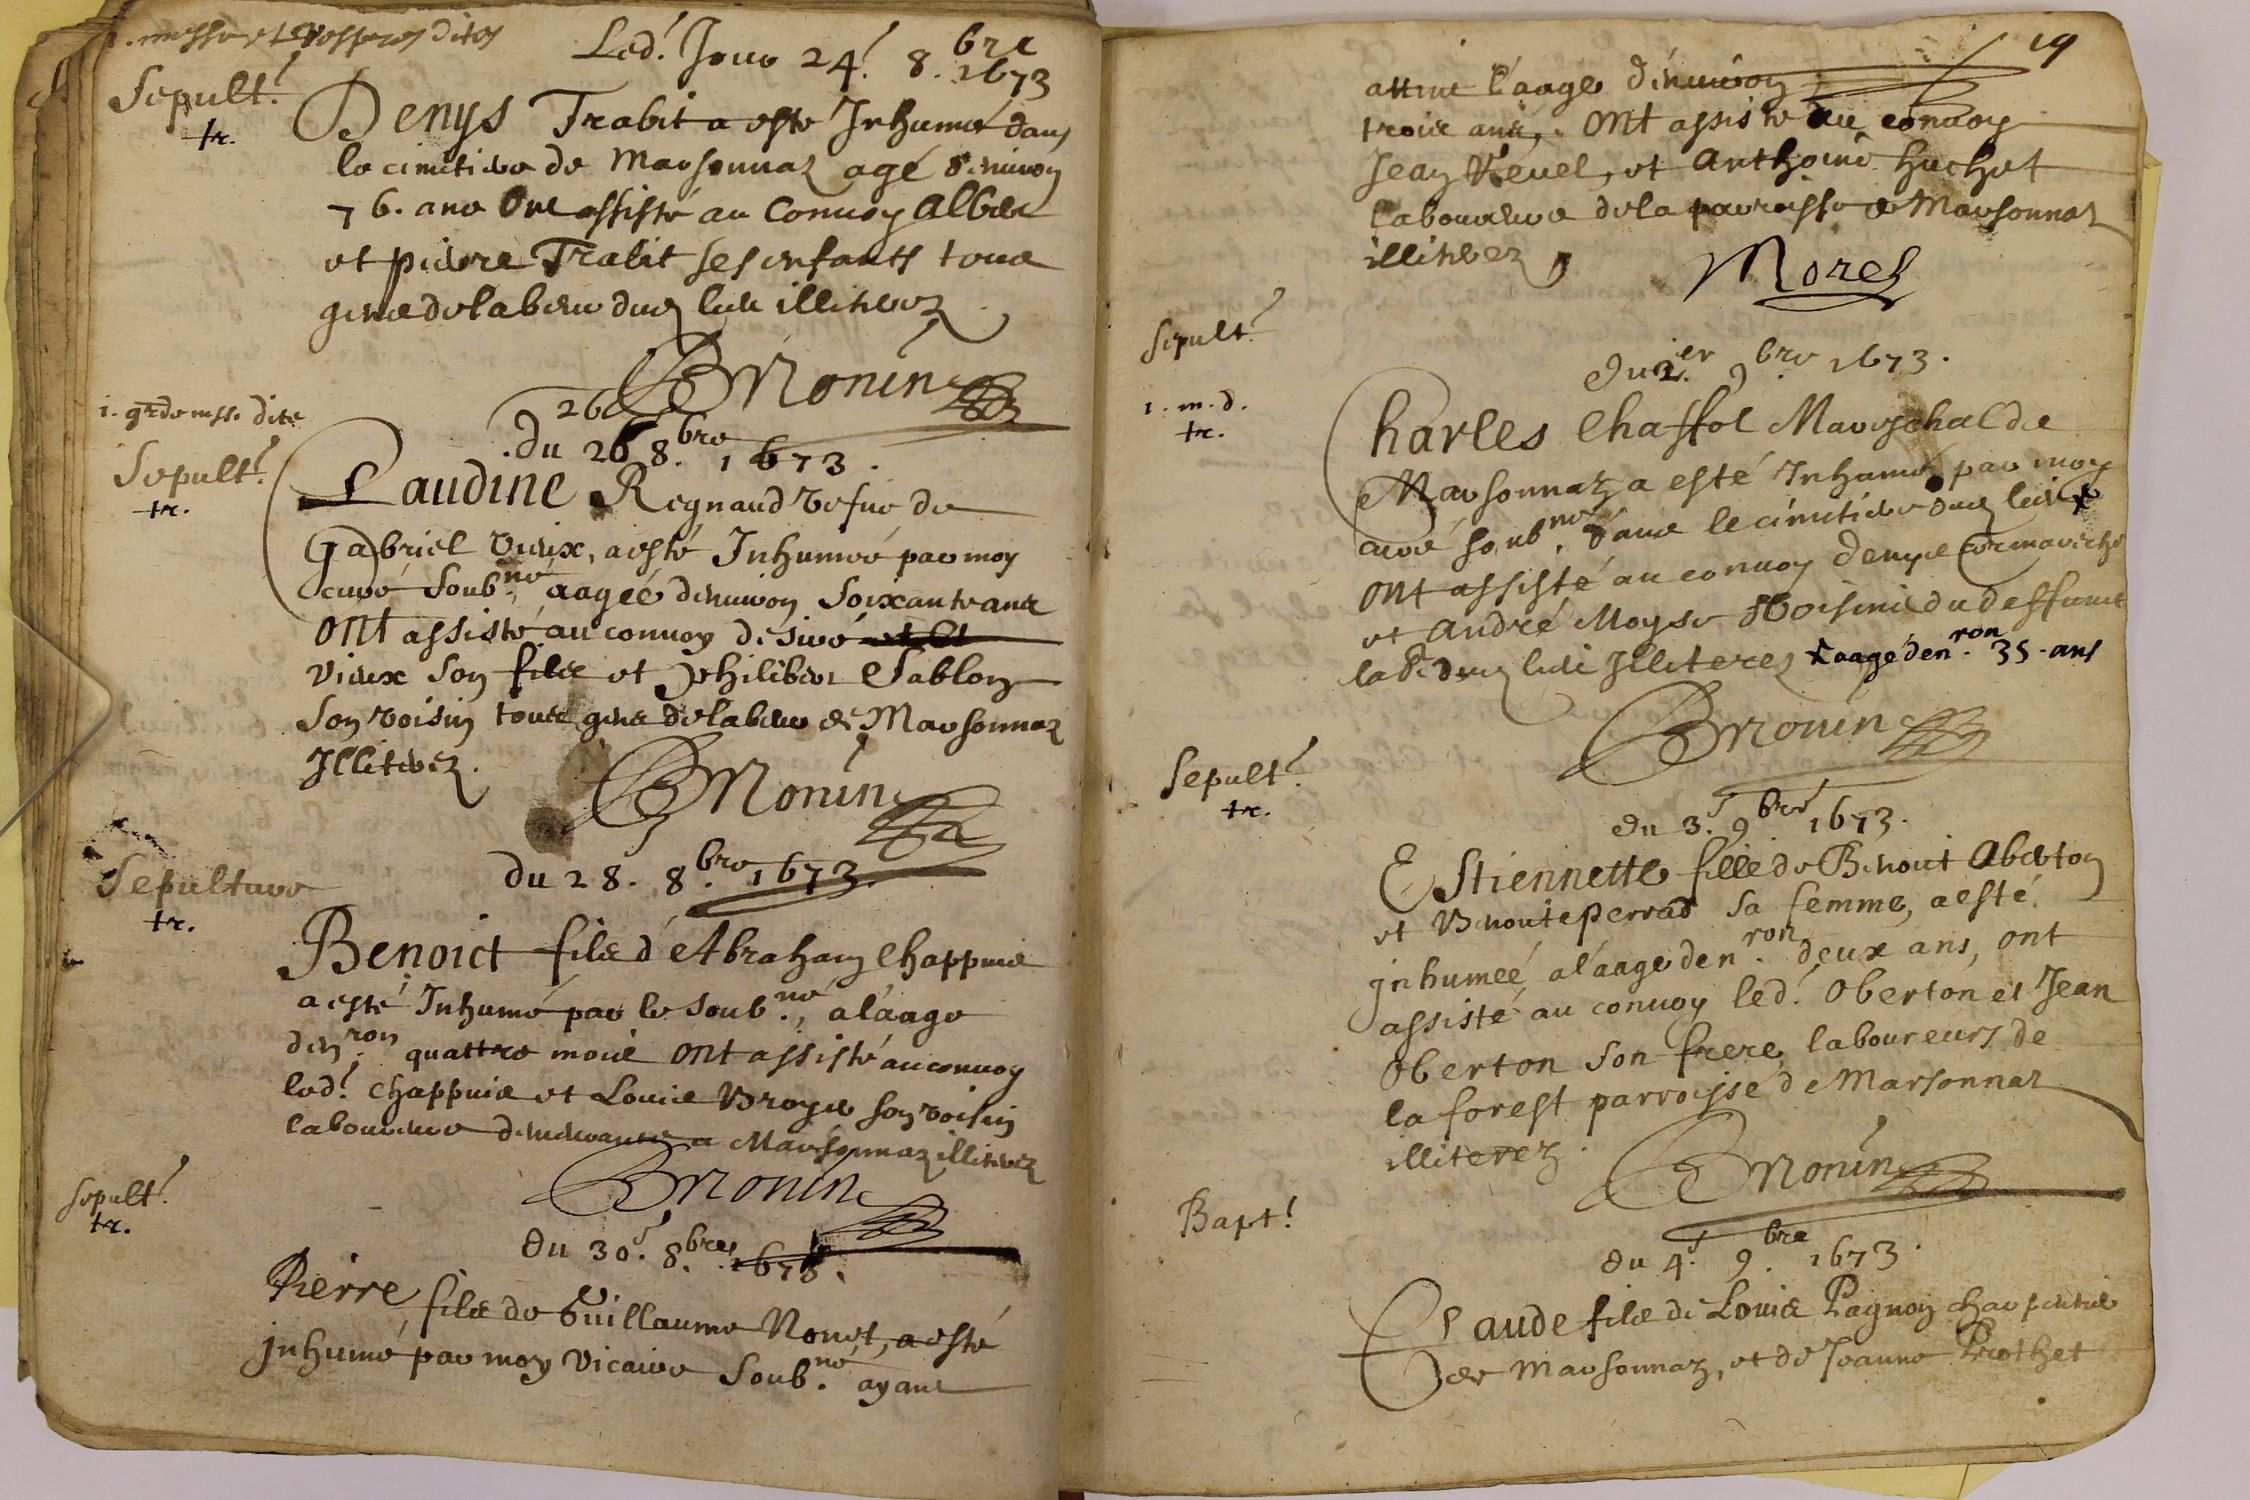 1. messe et vespres dites
Led.t Jour 24.e 8.bre 1673
Sepult.re
tr.
Denys Trabit a esté Inhumé dans
le cimetiere de Marsonnaz agé d'environ
76. ans Ont assisté au Convoy Alber
et pierre Trabit ses enfants tous
gens de labeur dud lieu illiterez
BMonin
1. grde messe dite
26
.du 26 8.bre 1673.
Sepult.re
tr.
Claudine Regnaud vefve de
Gabriel vieux, a esté Inhumée par moy
curé soub.né aagée d'environ soixante ans
ont assisté au convoy desiré
vieux son fils et philibert Sablon
son voisin tous gens de labeur de Marsonnaz
Illiterez.
BMonin
du 28. 8.bre 1673.
Sepulture
tr.
Benoict fils d'Abraham Chappuis
a esté Inhumé par le soub.né, a l'aage
d'en.ron quattre mois ont assisté au convoy
led.t Chappuis et Louis Broye son voisin
laboureurs demeurants a Marsonnaz illiterez
BMonin
Sepult.re
tr.
du 30.e 8.bre 1673.
Pierre fils de Guillaume Nonet, a esté
inhumé par moy vicaire soub.né ayant
19
attint l'aage d'environ
trois ans,. Ont assisté au convoy
Jean Revel, et Anthoine huchet
laboureurs de la parroisse de Marsonnaz
illiterez,
Morel
Sepult.re
1. m. d.
tr.
du 2.er 9.bre 1673.
Charles Chaffol Mareschal de
Marsonnaz a esté Inhumé par moy
curé soub.né dans le cimetiere dud lieu x
ont assisté au convoy denys
et André Moyse voisins du deffunct
lab.rs dud lieu Illiterez x aagé d'en.ron 35. ans
BMonin
Sepult.re
tr.
du 3.e 9.bre 1673.
Estiennette fille de Benoit Aberton
et Benoite perrad sa femme, a esté
inhumeé, a l'aage d'en.ron deux ans, ont
assisté au convoy led.t Oberton et Jean
Oberton son frere, laboureurs de
la forest parroisse de Marsonnaz
illiterez.
BMonin
Bapt.e
du 4.e 9.bre 1673.
Claude fils de Louis Pagnon charpentier
de Marsonnaz, et de Jeanne Prothet